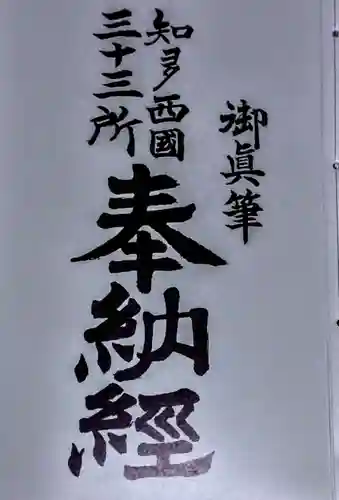 御眞筆
知多西國
三十三所
奉納経